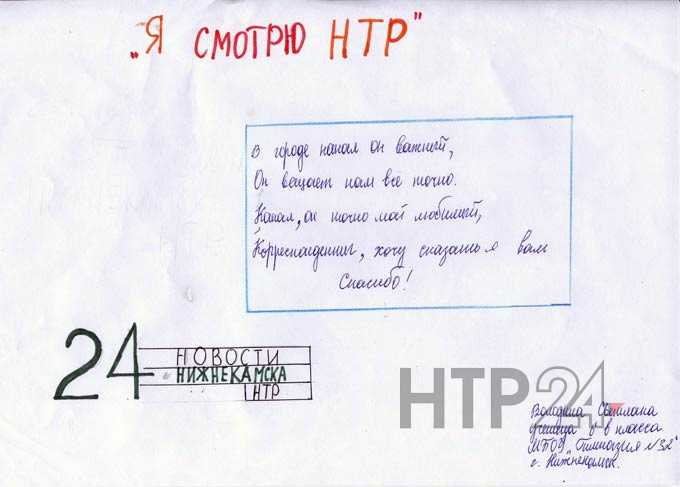 „Я СМОТРЮ НТР"
В городе канал он важный,
Он вещает нам всё точно.
Канал, он точно мой любимый,
Корреспондент, хочу сказать я вам
Спасибо!
24 НОВОСТИ
НИЖНЕКАМСКА
НТР
НТР24
Володина Светлана
ученица 6 в класса
МБОУ „Гимназия №32"
г. Нижнекамск.